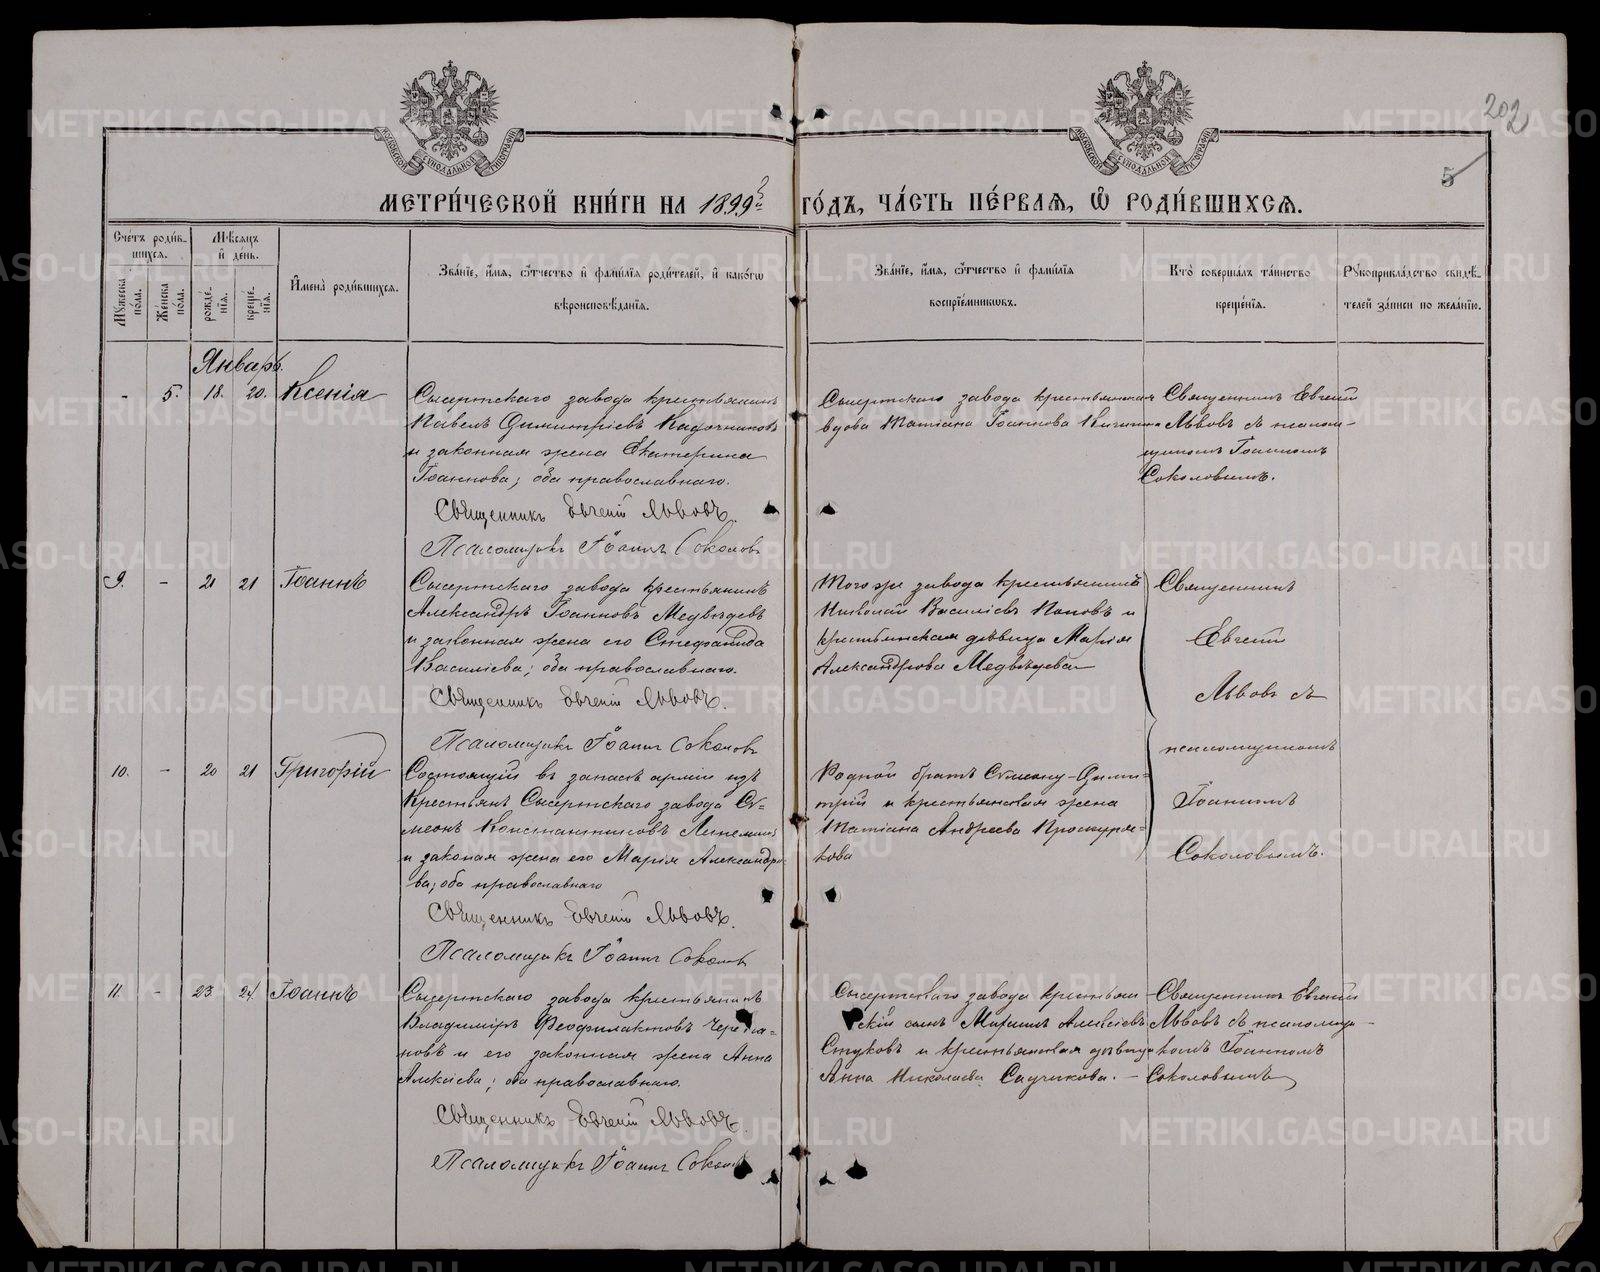 202
5
МЕТРИ́ЧЕСКОЙ КНИ́ГИ НА 1899й ГО́ДЪ, ЧА́СТЬ ПЕ́РВАѦ, Ѽ РОДИ́ВШИХСѦ.
Сче́тъ роди́в-
шихсѧ.
Мꙋжеска
пола.
Же́нска
пола.
Мѣ́сѧцъ
и҆ де́нь.
рожде́-
нїѧ.
креще́-
нїѧ.
И҆мена̀ роди́вшихсѧ.
Зва́нїе, и҆́мѧ, ѻ҆́тчество и҆ фами́лїѧ роди́телей, и҆ како́гѡ
вѣроисповѣ́данїѧ.
Зва́нїе, и҆́мѧ, ѻ҆́тчество и҆ фами́лїѧ
воспрїе́мникѡвъ.
Кто̀ соверша́лъ та́инство
креще́нїѧ.
Рꙋкоприкла́дство свидѣ́-
телей за́писи по жела́нїю.
Январь.
- 5. 18. 20. Ксенія
Сысертскаго завода крестьянинъ
Павелъ Димитріевъ Кадочниковъ
и законная жена Екатерина
Іоаннова; оба православнаго.
Священникъ Евгеній Львовъ.
Псаломщикъ Іоаннъ Соколовъ
Сысертскаго завода крестьянская
вдова Татіана Іоаннова
Священникъ Евгеній
Львовъ съ псалом-
щикомъ Іоанномъ
Соколовымъ.
9. - 21 21 Іоаннъ
Сысертскаго завода крестьянинъ
Александръ Іоанновъ Медвѣдевъ
и законная жена его Стефанида
Василіева; оба православнаго.
Священникъ Евгеній Львовъ.
Псаломщикъ Іоаннъ Соколовъ
Того же завода крестьянинъ
Николай Василіевъ Поповъ и
крестьянская дѣвица Марія
Александрова Медвѣдева
Священникъ
Евгеній
Львовъ съ
псаломщикомъ
Іоанномъ
Соколовымъ.
10. - 20 21 Григорій
Состоящій въ запасѣ арміи изъ
Крестьянъ Сысертскаго завода Си-
меонъ Константиновъ
и законая жена его Марія Александро-
ва; оба православнаго
Священникъ Евгеній Львовъ.
Псаломщикъ Іоаннъ Соколовъ
Родной братъ Симеону-Дими-
трій и крестьянская жена
Татіана Андреева Проскуря-
кова
11. - 23 24 Іоаннъ
Сысертскаго завода крестьянинъ
Владиміръ Феофилактовъ
новъ и его законная жена Анна
Алексіева; оба православнаго.
Священникъ Евгеній Львовъ.
Псаломщикъ Іоаннъ Соколовъ
Сысертскаго завода крестьян-
скій сынъ Алексіевъ
Стуковъ и крестьянская дѣвица
Анна Николаева Садчикова. -
Священникъ Евгеній
Львовъ съ псаломщи-
комъ Іоанномъ
Соколовымъ
METRIKI.GASO-URAL.RU